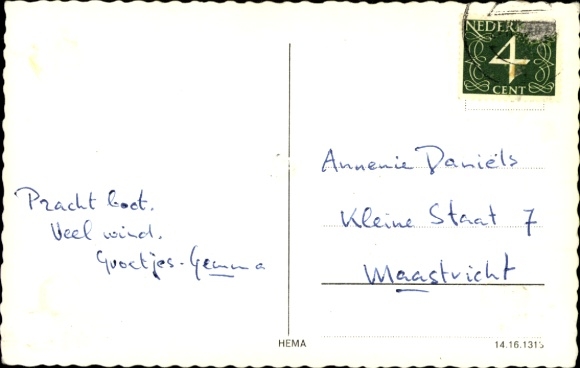 NEDER
4
CENT
Annemie Daniëls
Kleine Staat 7
Maastricht
Pracht boot.
Veel wind.
Groetjes - Gemma
HEMA
14.16.1315